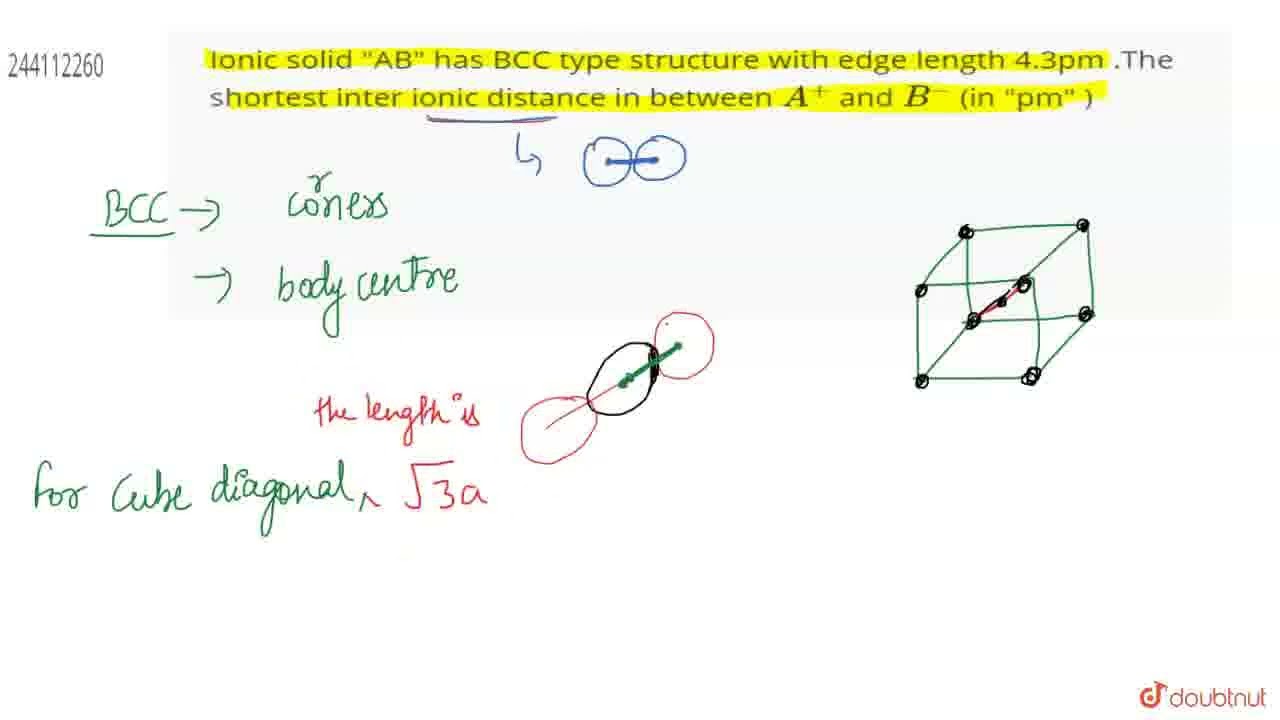 244112260
Ionic solid "AB" has BCC type structure with edge length 4.3pm .The
shortest inter ionic distance in between A⁺ and B⁻ (in "pm" )
BCC → corners
→ body centre
the length is
for cube diagonal, √3a
doubtnut